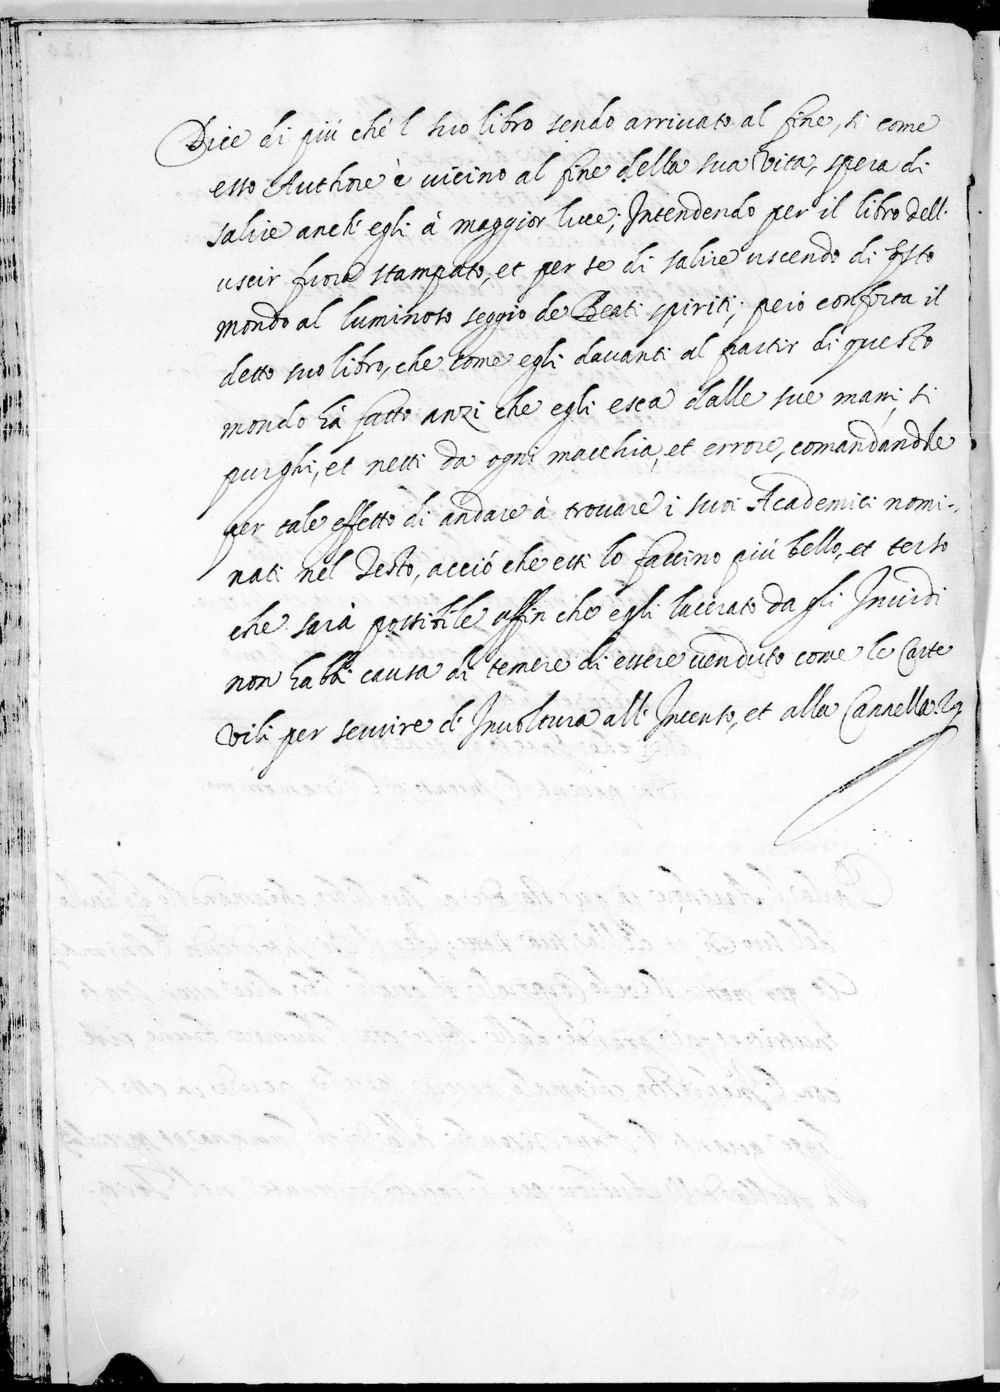 Dice di più ché l suo libro sendo arrivato al fine, si come
esso Authore è vicino al fine della sua Vita, spera di
salire anch' egli à maggior luce; Intendendo per il libro dell'
uscir fuora stampato, et per se di salire uscendo di qsto
mondo al luminoso seggio de Beati spiriti; però conforta il
detto suo libro, che come egli davanti al partir di questo
mondo hà fatto anzi che egli esca dalle sue mani, si
purghi, et netti da ogni macchia, et errore, comandandole
per tale effetto di andare à trovare i suoi Academici nomi-
nati nel Testo, acciò che essi lo faccino più bello, et terso
che sarà possibile affin che egli lacerato da gli Invidi
non habbi causa di temere di essere venduto come le Carte
Vili per servire d' Involtura all' Incenso, et alla Cannella.